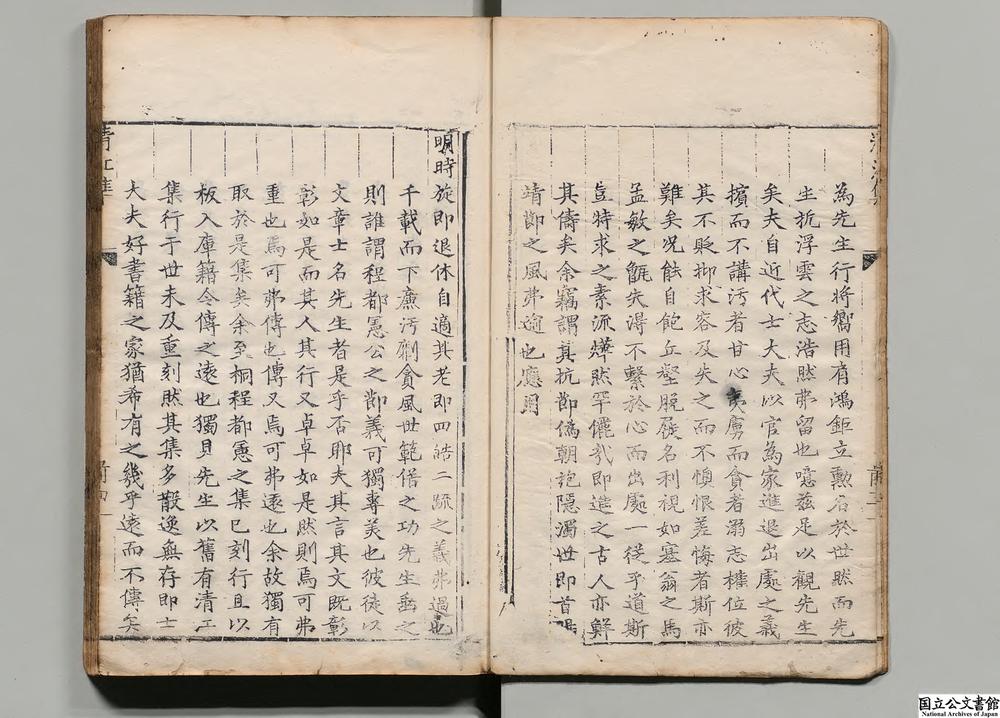 為先生行將嚮用有鴻鉅立勳名於世然而先
生抗浮雲之志浩然弗留也噫茲足以觀先生
矣夫自近代士大夫以官為家進退出處之義
擯而不講汚者甘心夷虜而貪者溺志權位彼
其不貶抑求容及失之而不懊恨差悔者斯亦
難矣况能自飽丘壑脫屣名利視如塞翁之馬
孟敏之甑失得不繫於心而出處一從乎道斯
豈特求之素流燁然罕儷扵即造之古人亦鮮
其儔矣余竊謂其抗節偽朝詭隠濁世即首陽
靖節之風弗逾也應用
明時旋即退休自適其老即四皓二疏之義弗過也
千載而下廉汚剔貪風世範俗之功先生垂之
則誰謂程都憲公之節義可獨專美也彼徒以
文章士名先生者是乎否耶夫其言其文既彰
彰如是而其人其行又卓卓如是然則焉可弗
重也焉可弗傳也傳又焉可弗遠也余故獨有
取於是集矣余至桐程都憲之集已刻行且以
板入庫籍令傳之遠也獨貝先生以舊有清江
集行于世未及重刻然其集多散逸無存即士
大夫好書籍之家猶希有之幾乎遠而不傳矣
清江集
前四
国立公文書館
National Archives of Japan